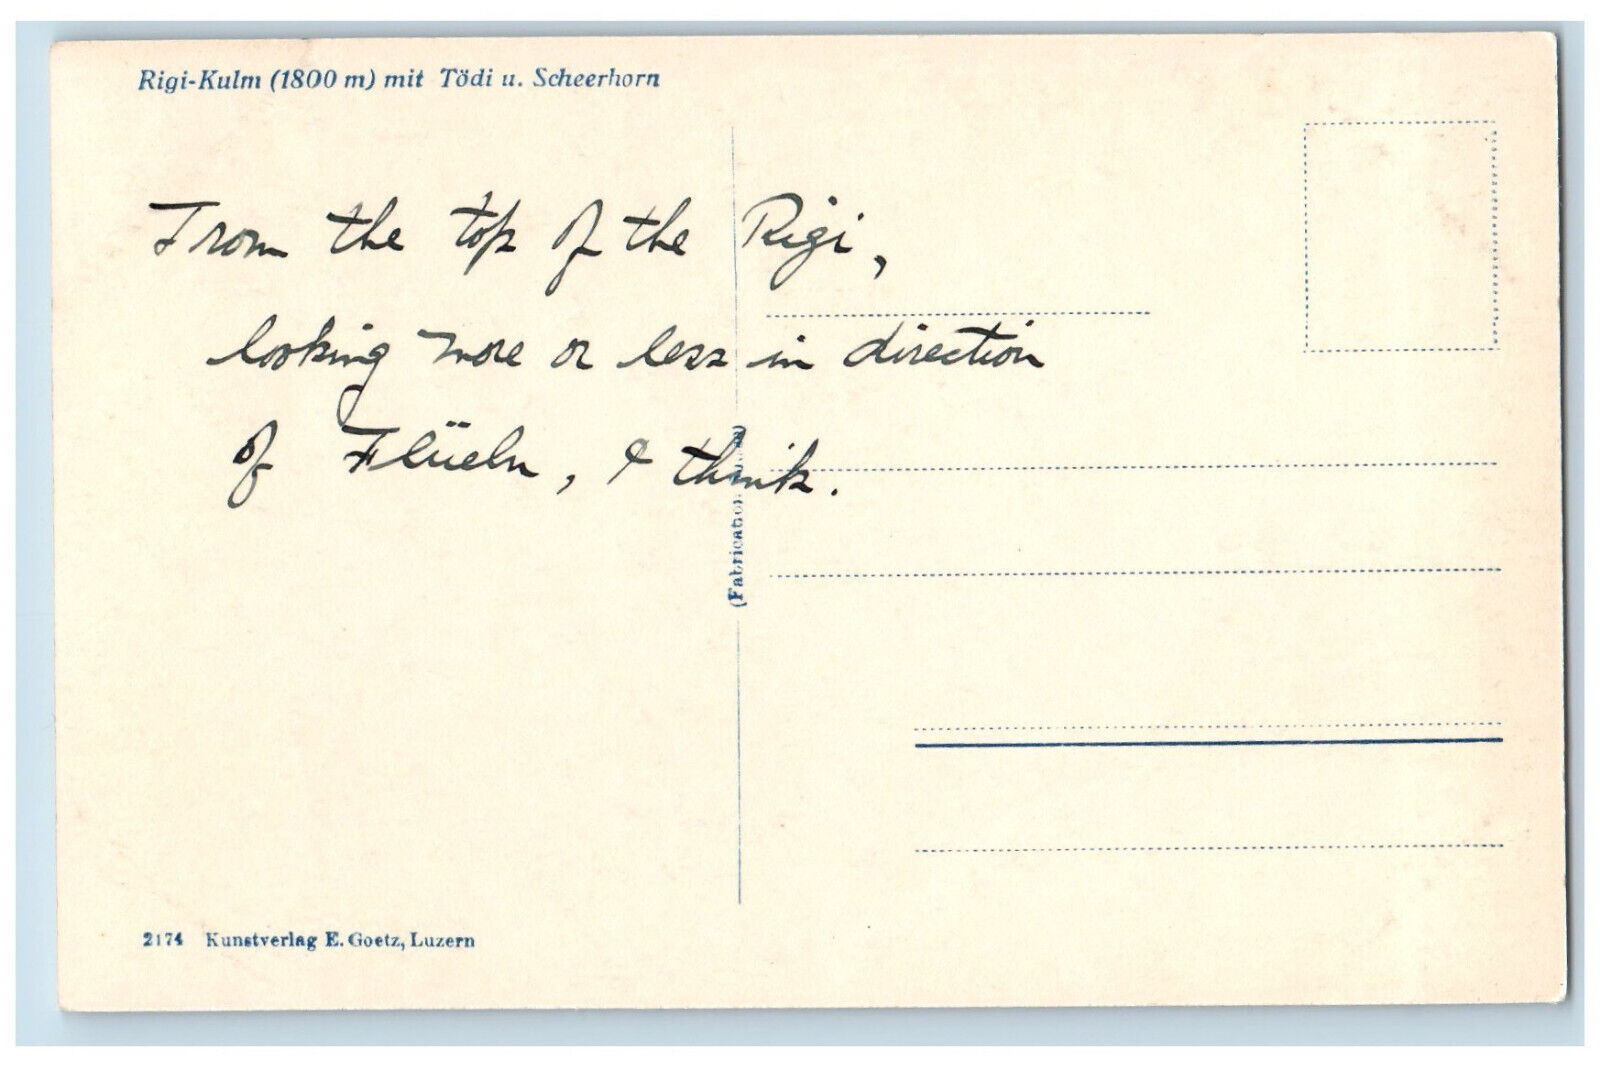 Rigi-Kulm (1800 m) mit Tödi u. Scheerhorn
From the top of the Rigi,
looking more or less in direction
of Flüeln, I think.
(Fabrication
2174 Kunstverlag E. Goetz, Luzern